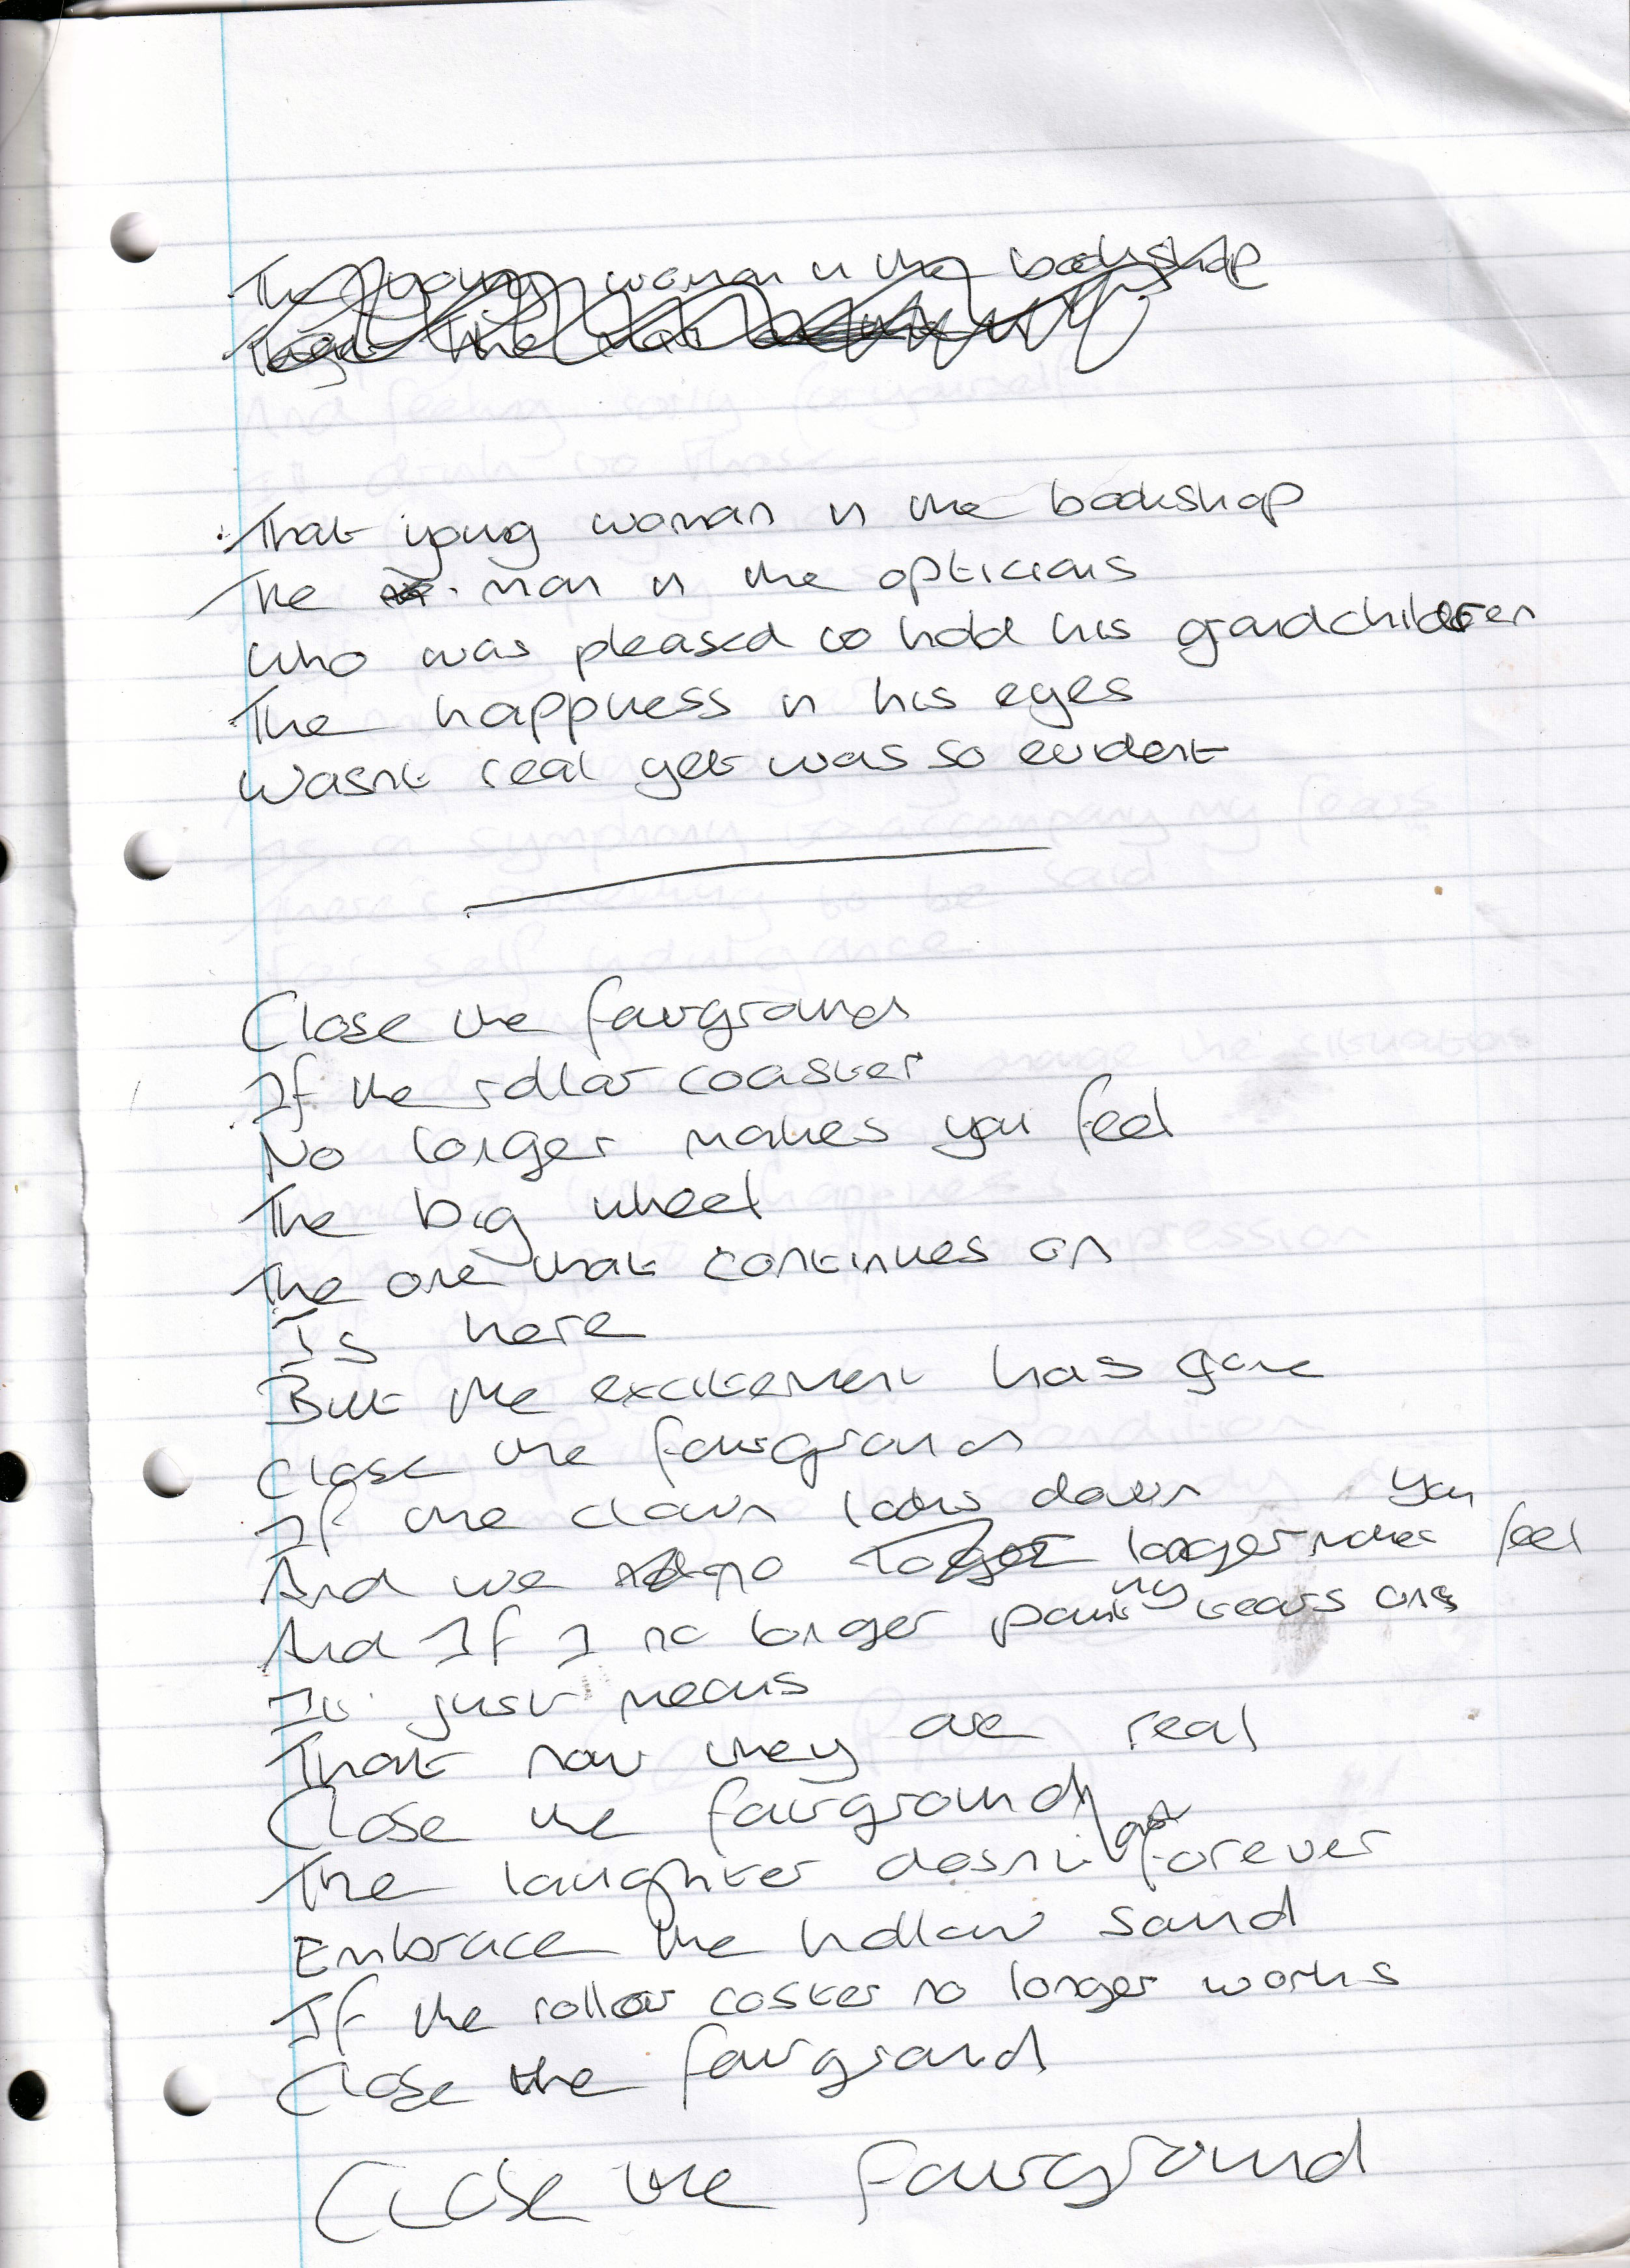 The young woman in the bookshop
That young woman in the bookshop
The man in the opticians
Who was pleased to hold his grandchildren
The happiness in his eyes
Wasnt real yet was so evident
Close the fairground
If the rollar coaster
No longer makes you feel
The big wheel
The one that continues on
Is here
But the excitement has gone
Close the fairground
If the clown looks down
And we no longer makes you feel
And If I no longer paint my tears on
It just means
That now they are real
Close the fairground
The laughter doesnt go forever
Embrace the hollow sound
If the rollar coster no longer works
Close the fairground
Close the fairground